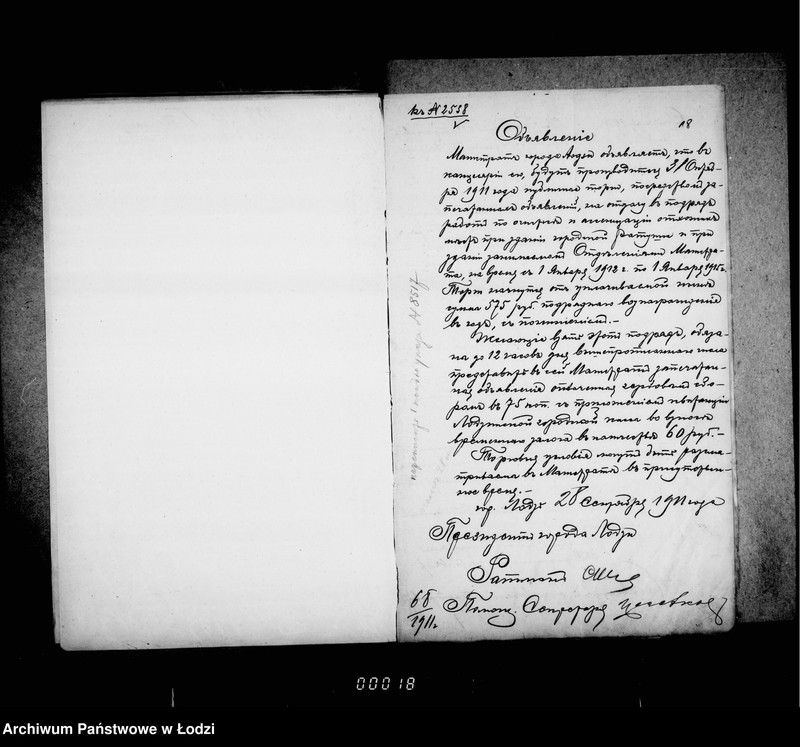 къ № 2558
18
Объявленіе
Магистратъ города Лодзи объявляетъ, что въ
канцеляріи его, будутъ производиться 31 Октяб-
ря 1911 года публичные торги, посредствомъ за-
печатанныхъ объявленій, на отдачу въ подрядъ
работъ по очисткѣ и ассенизаціи отхожихъ
мѣстъ при зданіи городской Ратуши и при
зданіи занимаемомъ Отдѣленіями Магистра-
та, на время съ 1 Января 1912 г. по 1 Января 1915 г.
Торги начнутся отъ уплачиваемой нынѣ
суммы 575 руб. подряднаго вознагражденія
въ годъ, съ пониженіемъ.-
Желающіе взять этотъ подрядъ, обяза-
ны до 12 часовъ дня вышепрописаннаго числа
представить въ сей Магистратъ запечатан-
ныя объявленія оплаченныя гербовымъ сбо-
ромъ въ 75 коп. съ приложеніемъ квитанціи
Лодзинской городской кассы во взносѣ
временнаго залога въ количествѣ 60 руб.-
Торговыя условія могутъ быть разсма-
триваемы въ Магистратѣ въ присутствен-
ное время.-
гор. Лодзь 28 Сентября 1911 года
Президентъ города Лодзи
Ратманъ
Помощ. Секретаря
68
1911 г.
00018
Archiwum Państwowe w Łodzi